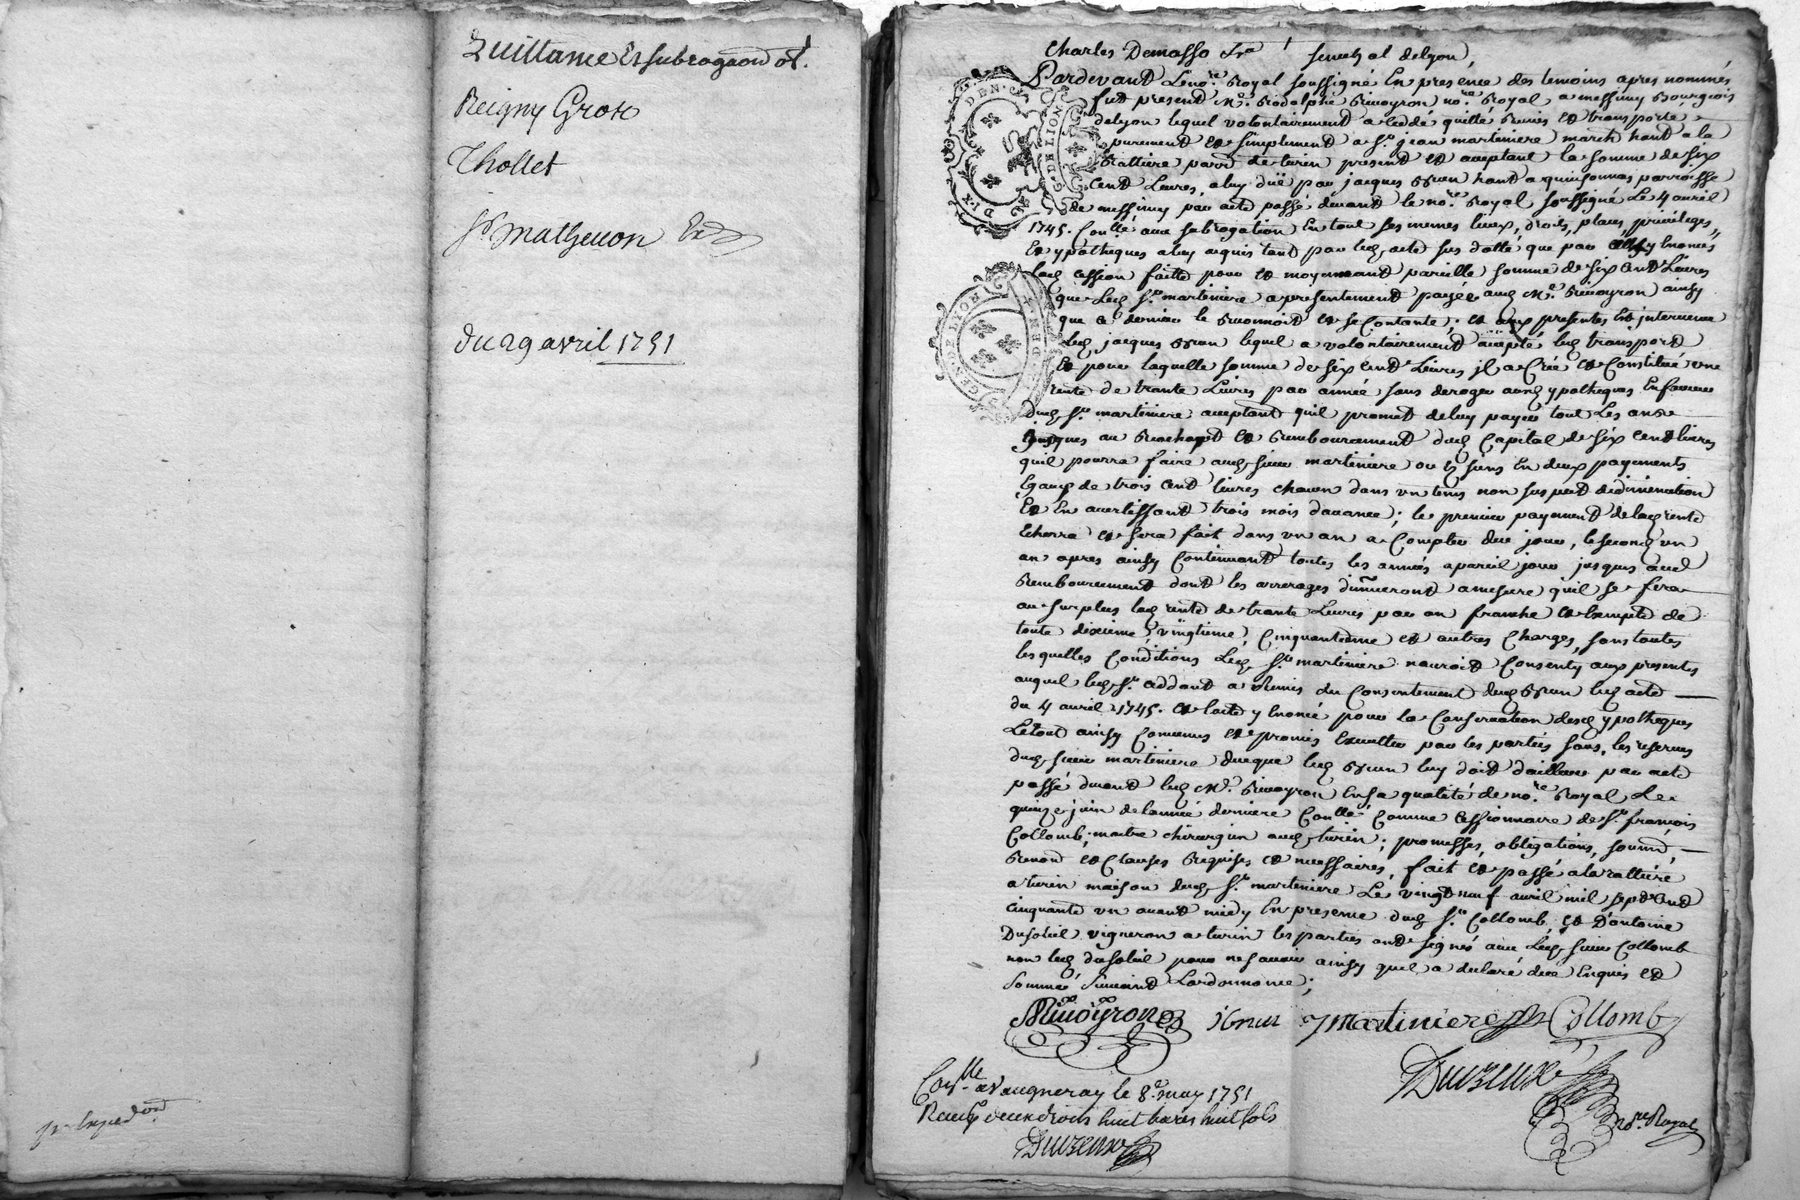 Quittance et subrogaon
Reigny Grox
Thollet
Sr. Mathevon
du 29 avril 1751
Charles Demasso senechal delyon
Pardevant Leno.re Royal soussigné En presence des temoins apres nommés
fut present Me. Rodolphe Rivoyron no.re Royal a messimy Bourgeois
delyon lequel volontairement a ceddé quitté remis et transporté
purement et simplement a Sr. jean martiniere marchand a la
Rattiere parr. de turin present et aceptant la somme de six
cent Livres, aluy düe par jacques Brun a quinsonnas parroisse
de messimy par acte passé devant le no.re Royal soussigné Le 4 avril
1745. Conllé avec subrogation En tout ses memes lieux, droits, place, privileges,
et ypotheques aluy aquis tant par led. acte sus datté que par y Enoncés
lad. cession faitte pour et moyennant pareille somme de six cent Livres
que Led. Sr. martiniere a presentement payée aud. Me. Rivoyron ainsy
que ce dernier le reconnoit et se Contante; et aux presentes Est intervenu
Led. jacques Brun lequel a volontairement accepté led. transport
et pour laquelle somme de six cent Livres il a Créé et Constitué une
rente de trante Livres par année sans deroger aux ypotheques En faveur
dud. Sr. martiniere aceptant quil promet deluy payer tout Les ans
jusques au Rachapt et remboursement dud. Capital de six cent livres
quil pourra faire aud. sieur martiniere ou es siens En deux payements
Egaux de trois cent livres chacun dans un tems non suspect dediminution
Et En avertissant trois mois davance; le premier payement delad. rente
Echerra et sera fait dans un an a Compter de ce jour, le second un
an apres ainsy Continuant toutes les années apareil jour jusques aud.
Remboursement dont les arrerages diminueront amesure quil se fera
au surplus lad. rente de trante Livres par an franche et Exempte de
toute dixieme, vingtieme, Cinquantieme et autres Charges, sans toutes
lesquelles Conditions Led. Sr. martiniere nauroit Consenty aux presentes
auquel led. Sr. a remis du Consentement dud. Brun led. acte
du 4 avril 1745. et lacte y Enoncé pour la Conservation desd. ypotheques
Letout ainsy Convenus et promis Executter par les parties sans les reserves
dud. sieur martiniere deceque led. Brun luy doit dailleurs par acte
passé devant led. Me. Rivoyron En sa qualité de no.re Royal Le
quinze juin de lannée derniere Conllé Comme Cessionnaire de Sr. francois
Collomb, maitre chirurgien aud. turin; promesses, obligations, soumd.,
Renond. et Clauses Requises et necessaires, fait et passé a la rattiere
a turin maison dud. Sr. martiniere Le vingt neuf avril mil sept cent
cinquante un avant midy En presence dud. Sr. Collomb, et D'antoine
Dusoleil vigneron a turin les parties ont signés avec Led. sieur Collomb
non led. dusoleil pour ne savoir ainsy quil a declaré de ce Enquis et
sommé suivant Lordonnance;
Rivoyron j Brun J martiniere Collomb
Duizeux
no.re Royal
Conllé a Vaugneray le 8e. may 1751
Receu huit livres huit sols
Duizeux